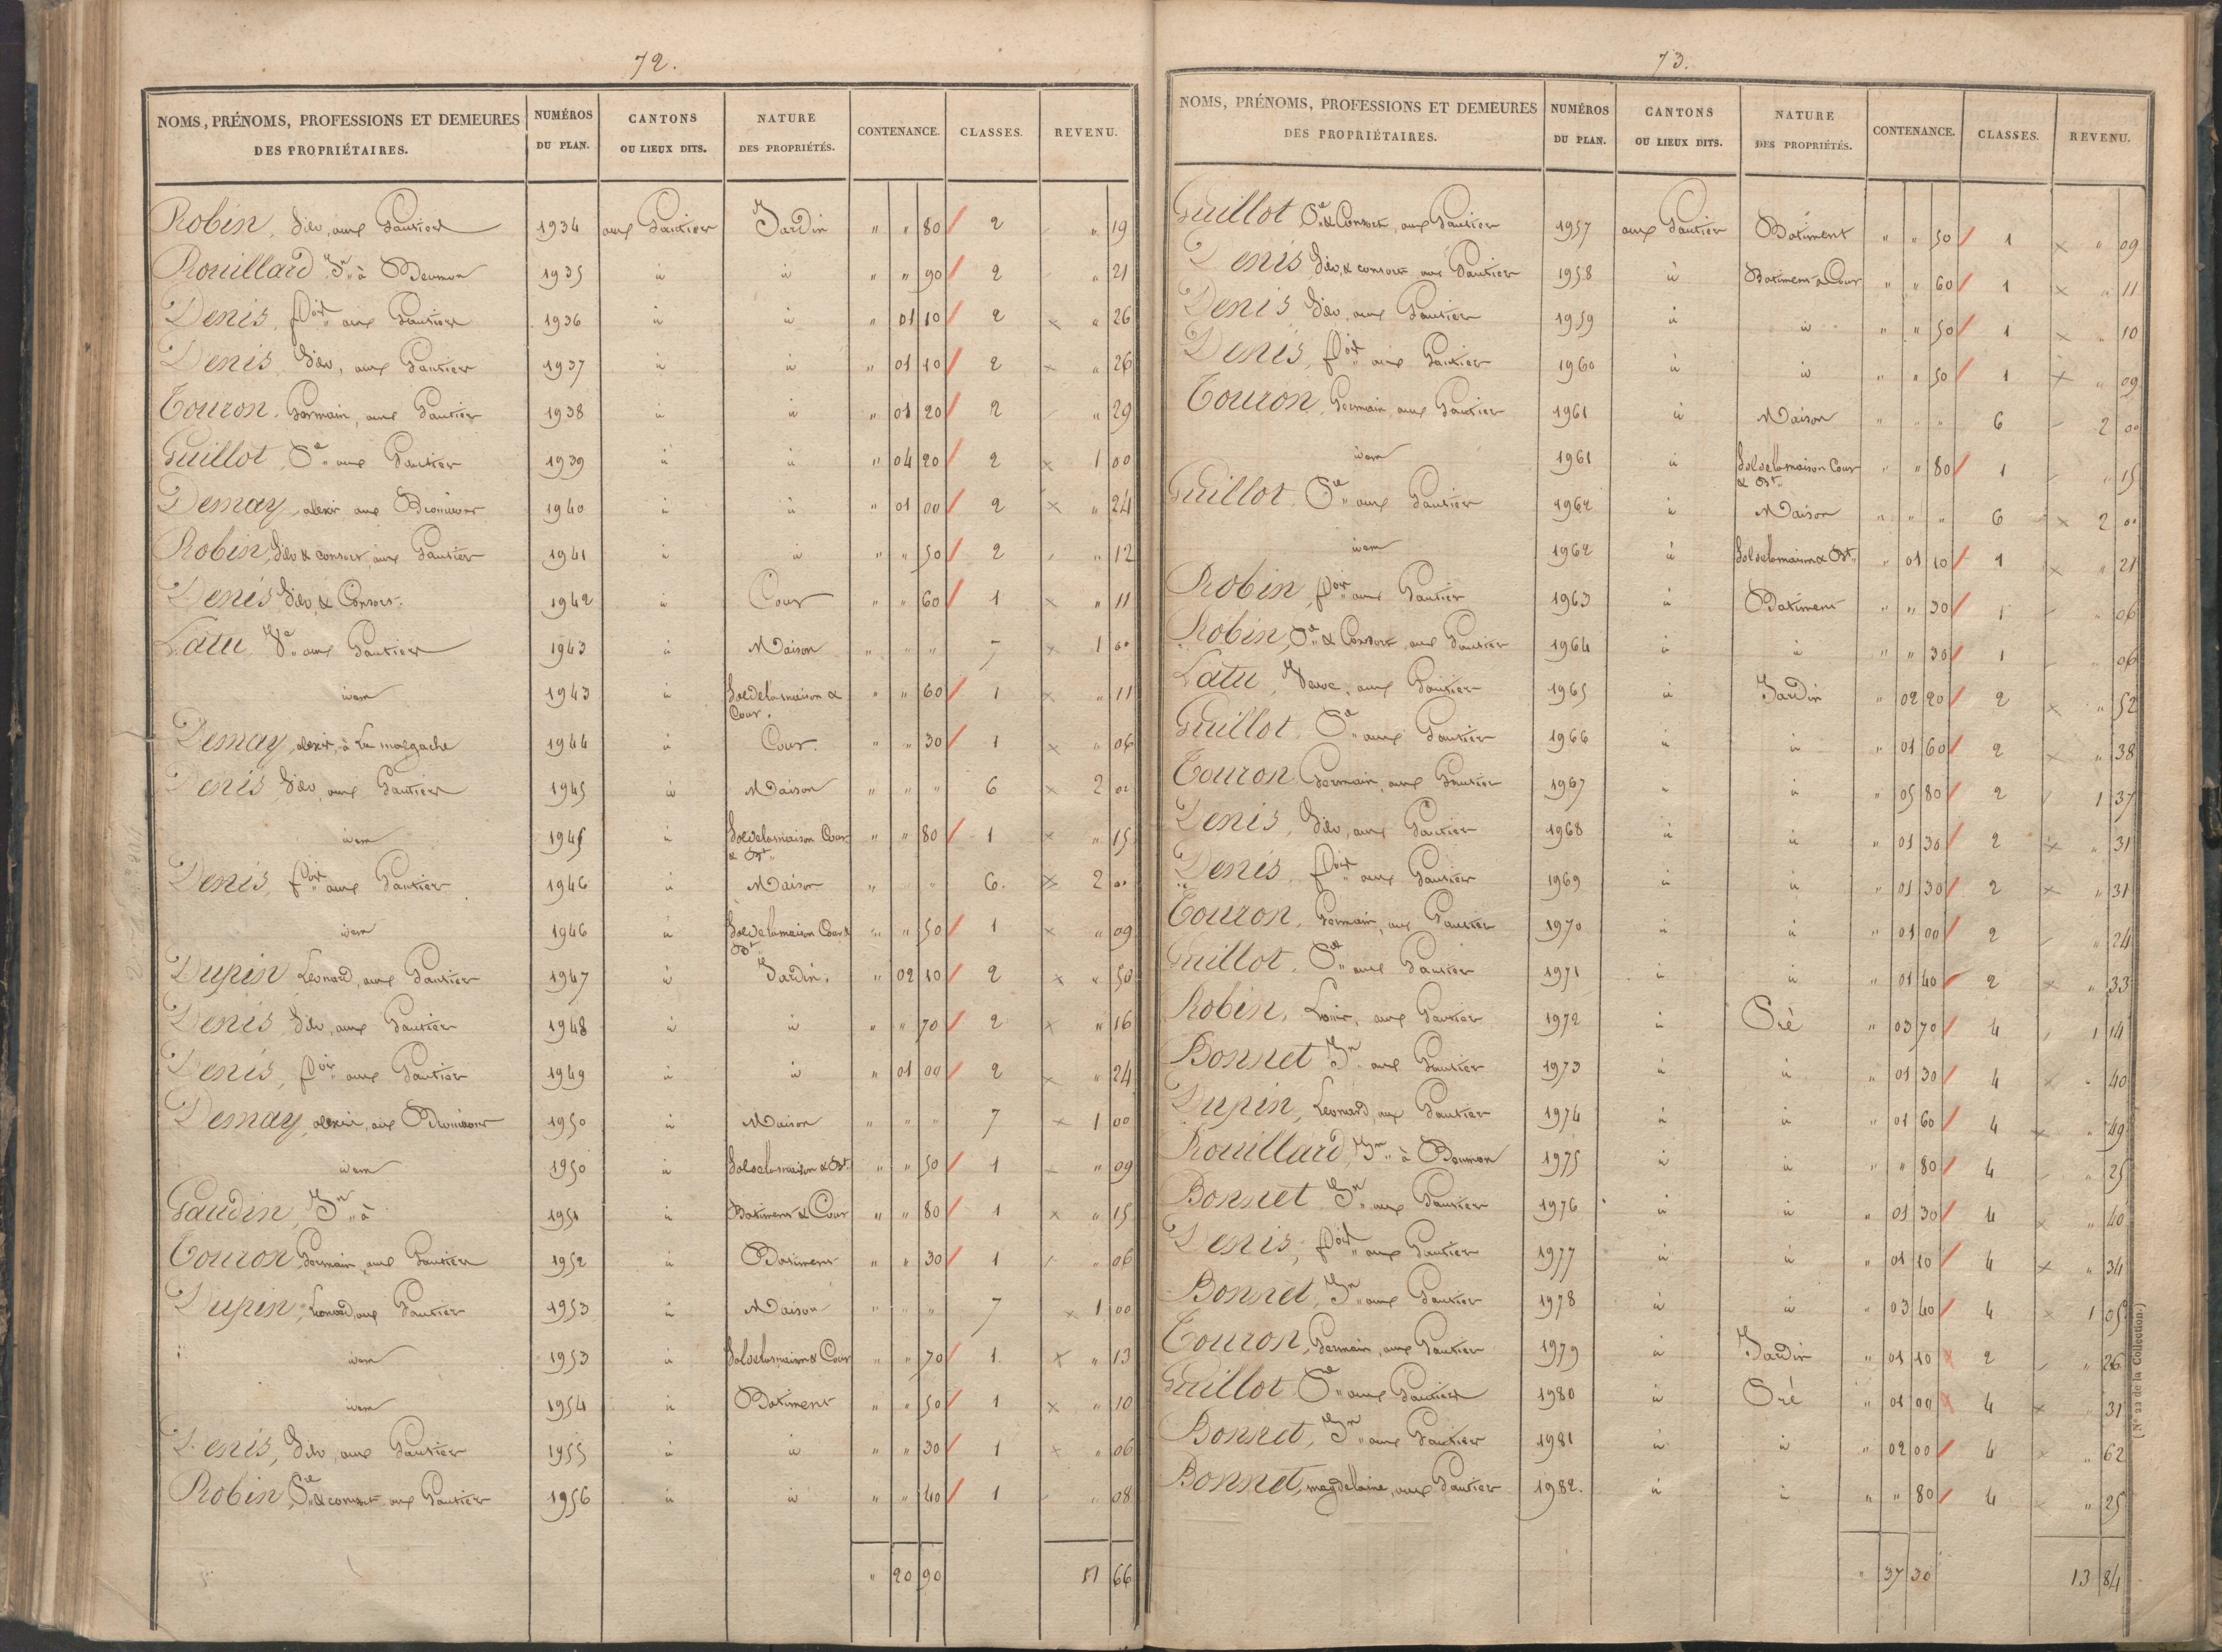 72.
NOMS, PRÉNOMS, PROFESSIONS ET DEMEURES DES PROPRIÉTAIRES. NUMÉROS DU PLAN. CANTONS OU LIEUX DITS. NATURE DES PROPRIÉTÉS. CONTENANCE. CLASSES. REVENU.
Robin, Silv, aux Gautier 1934 aux Gautier Jardin " " 80 2 " 19
Rouillard Jn à 1935 id id " " 90 2 " 21
Denis, aux Gautier 1936 id id " 01 10 2 " 26
Denis, Silv, aux Gautier 1937 id id " 01 10 2 " 26
Touron, Germain, aux Gautier 1938 id id " 01 20 2 " 29
Guillot, aux Gautier 1939 id id " 04 20 2 1 00
Demay, alexis aux 1940 id id " 01 00 2 " 24
Robin, Silv & consort, aux Gautier 1941 id id " " 50 2 " 12
Denis Silv, & Consort. 1942 id Cour " " 60 1 " 11
Latu Ve aux Gautier 1943 id Maison " " " 7 1 00
idem 1943 id Sol de la maison & Cour. " " 60 1 " 11
Demay, alexis, à La malgache 1944 id Cour. " " 30 1 " 06
Denis Silv, aux Gautier 1945 id Maison " " " 6 2 00
idem 1945 id Sol de la maison Cour & Bt " " 80 1 " 15
Denis, aux Gautier 1946 id Maison " " " 6. 2 00
idem 1946 id Sol de la maison Cour & Bt " " 50 1 " 09
Dupin Leonard, aux Gautier 1947 id Jardin. " 02 10 2 " 50
Denis, Silv, aux Gautier 1948 id id " " 70 2 " 16
Denis, aux Gautier 1949 id id " 01 00 2 " 24
Demay, alexis, aux 1950 id Maison " " " 7 1 00
idem 1950 id Sol de la maison & Bt " " 50 1 " 09
Gaudin, Jn à 1951 id Batiment & Cour " " 80 1 " 15
Touron, Germain, aux Gautier 1952 id Batiment " " 30 1 " 06
Dupin, Leonard, aux Gautier 1953 id Maison " " " 7 1 00
idem 1953 id Sol de la maison & Cour " " 70 1 " 13
idem 1954 id Batiment " " 50 1 " 10
Denis, Silv, aux Gautier 1955 id id " " 30 1 " 06
Robin, & consort, aux Gautier 1956 id id " " 40 1 " 08
" 20 90 11 66
73.
NOMS, PRÉNOMS, PROFESSIONS ET DEMEURES DES PROPRIÉTAIRES. NUMÉROS DU PLAN. CANTONS OU LIEUX DITS. NATURE DES PROPRIÉTÉS. CONTENANCE. CLASSES. REVENU.
Guillot & Consort, aux Gautier 1957 aux Gautier Batiment " " 50 1 " 09
Denis Silv, & consort aux Gautier 1958 id Batiment & Cour " " 60 1 " 11
Denis Silv, aux Gautier 1959 id id " " 50 1 " 10
Denis, aux Gautier 1960 id id " " 50 1 " 09
Touron, Germain, aux Gautier 1961 id Maison " " " 6 2 00
idem 1961 id Sol de la maison Cour & Bt " " 80 1 " 15
Guillot, aux Gautier 1962 id Maison " " " 6 2 00
idem 1962 id Sol de la maison & Bt " 01 10 1 " 21
Robin, aux Gautier 1963 id Batiment " " 30 1 " 06
Robin, & Consort, aux Gautier 1964 id id " " 30 1 " 06
Latu, Veuve, aux Gautier 1965 id Jardin " 02 20 2 " 52
Guillot, aux Gautier 1966 id id " 01 60 2 " 38
Touron Germain, aux Gautier 1967 id id " 05 80 2 1 37
Denis, Silv, aux Gautier 1968 id id " 01 30 2 " 31
Denis, aux Gautier 1969 id id " 01 30 2 " 31
Touron, Germain, aux Gautier 1970 id id " 01 00 2 " 24
Guillot, aux Gautier 1971 id id " 01 40 2 " 33
Robin, Louis, aux Gautier 1972 id Pré " 03 70 4 1 14
Bonnet Jn aux Gautier 1973 id id " 01 30 4 " 40
Dupin, Leonard, aux Gautier 1974 id id " 01 60 4 " 49
Rouillard, Jn à 1975 id id " " 80 4 " 25
Bonnet Jn aux Gautier 1976 id id " 01 30 4 " 40
Denis, aux Gautier 1977 id id " 01 10 4 " 34
Bonnet, Jn aux Gautier 1978 id id " 03 40 4 1 05
Touron, Germain, aux Gautier 1979 id Jardin " 01 10 2 " 26
Guillot aux Gautier 1980 id Pré " 01 00 4 " 31
Bonnet, Jn aux Gautier 1981 id id " 02 00 4 " 62
Bonnet, magdelaine, aux Gautier 1982. id id " " 80 4 " 25
" 37 30 13 84
(N° 22 de la Collection.)